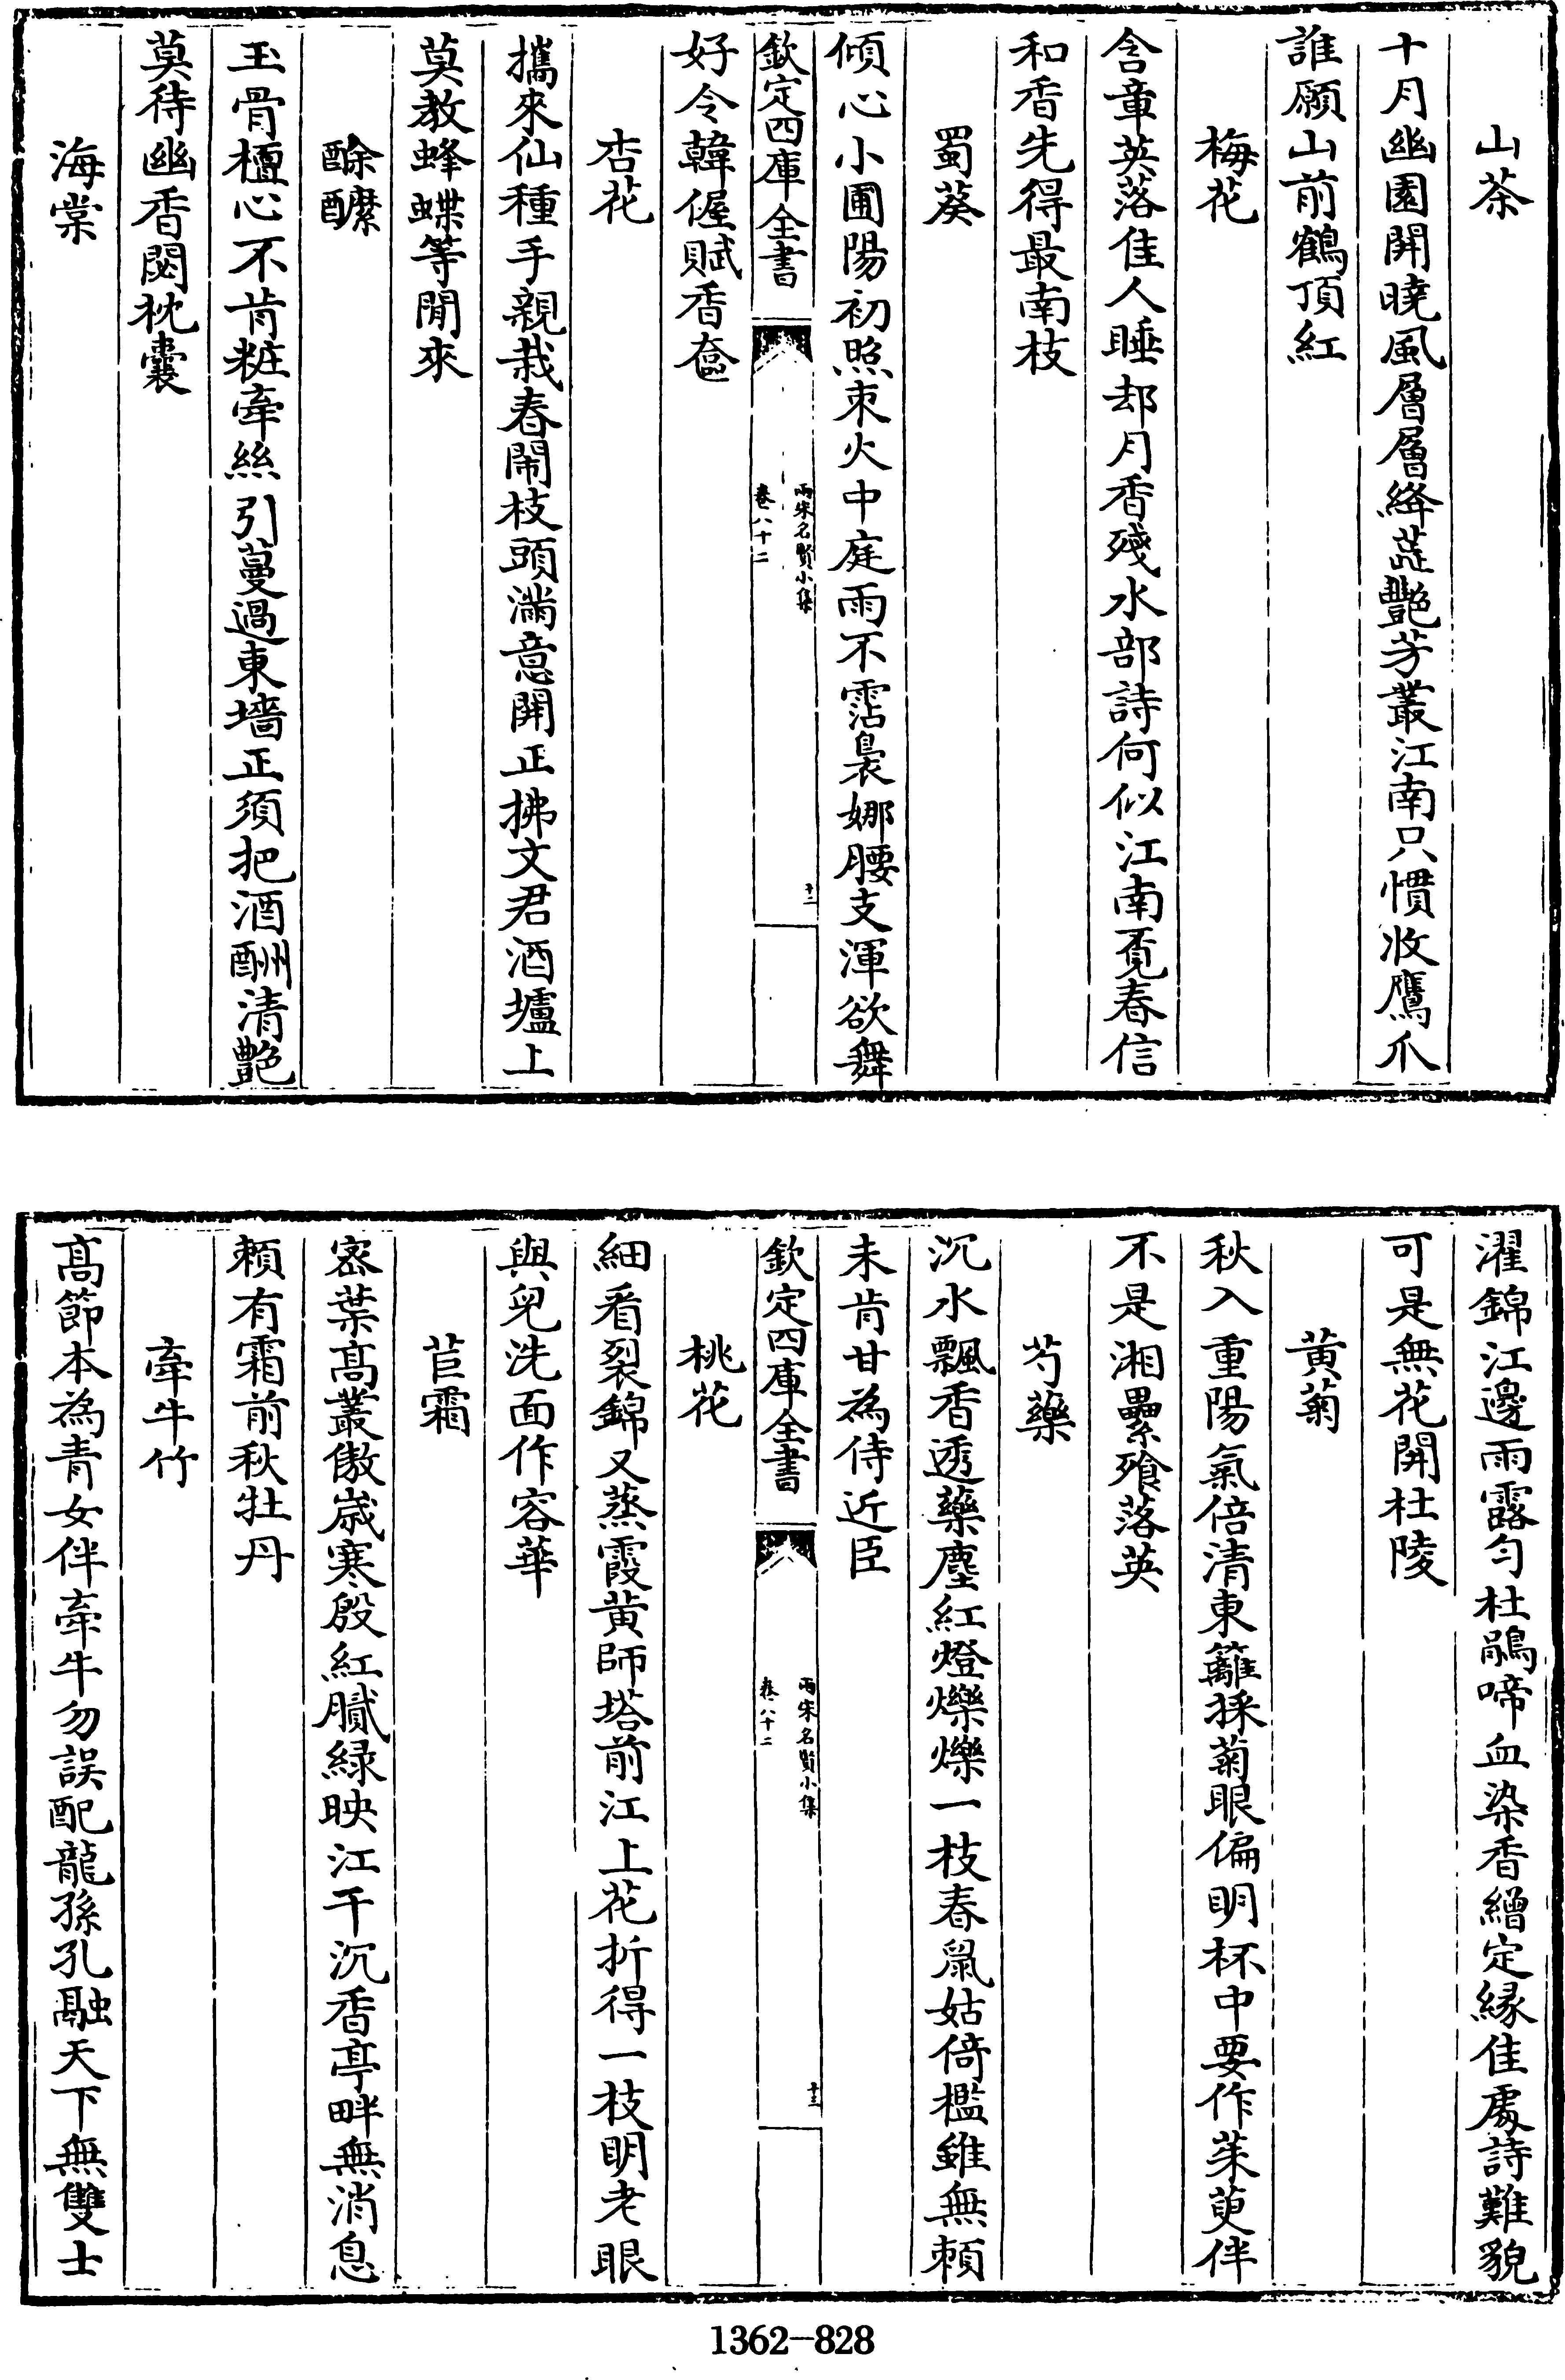 山茶
十月幽園開曉風層層絳蕋艷芳叢江南只慣收鷹爪
誰願山前鶴頂紅
梅花
含章英落佳人睡却月香殘水部詩何似江南覔春信
和香先得最南枝
蜀葵
傾心小圃陽初照朿火中庭雨不霑裊娜腰支渾欲舞
欽定四庫全書
兩宋名賢小集
卷八十二
十二
好令韓偓賦香奩
杏花
攜來仙種手親栽春鬧枝頭滿意開正拂文君酒壚上
莫教蜂蝶等閒來
酴醿
玉骨檀心不肯粧牽絲引蔓過東墻正須把酒酬清艷
莫待幽香閟枕囊
海棠
濯錦江邊雨露勻杜鵑啼血染香繒定緣佳處詩難貌
可是無花開杜陵
黄菊
秋入重陽氣倍清東籬採菊眼偏明杯中要作茱萸伴
不是湘纍飱落英
芍藥
沉水飄香透藥塵紅燈爍爍一枝春鼠姑倚檻雖無賴
未肯甘為侍近臣
欽定四庫全書
兩宋名賢小集
卷八十二
十三
桃花
細看裂錦又蒸霞黄師塔前江上花折得一枝明老眼
與兒洗面作容華
苣霜
宻葉髙叢傲歳寒殷紅膩緑映江干沉香亭畔無消息
頼有霜前秋牡丹
牽牛竹
髙節本為青女伴牽牛勿誤配龍孫孔融天下無雙士
1362-828